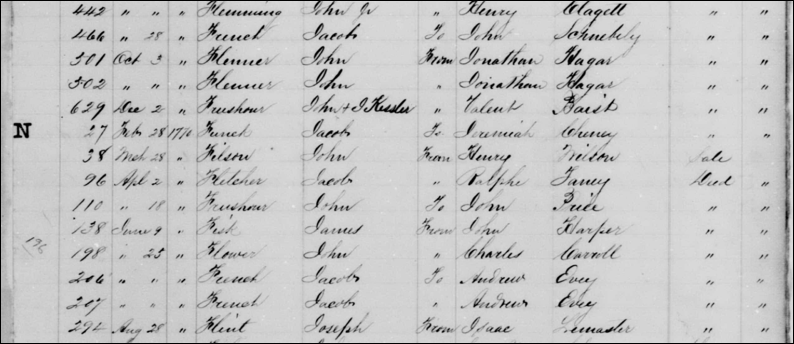 442 " " " Flemming John Jr " Henry Clagett " "
466 " 28 " Funck Jacob To John Schnebely " "
501 Oct 3 " Flenner John From Jonathan Hagar " "
502 " " Flenner John " Jonathan Hagar " "
629 Dec 2 " Feushour John & J Kessler " Valent " "
N 27 Feb 28 1776 Funck Jacob To Jeremiah Cheney " "
38 Mch 28 " Filson John From Henry Wilson Sale "
96 Apl 2 " Fletcher Jacob " Ralph Taney Deed "
110 " 18 " Feushour John To John Price " "
138 June 9 " Fisk James From John Harper " "
196
198 " 25 " Flower John " Charles Carroll " "
206 " " " Funck Jacob To Andrew Evey " "
207 " " " Funck Jacob " Andrew Evey " "
294 Aug 28 " Flint Joseph From Isaac Lemaster " "